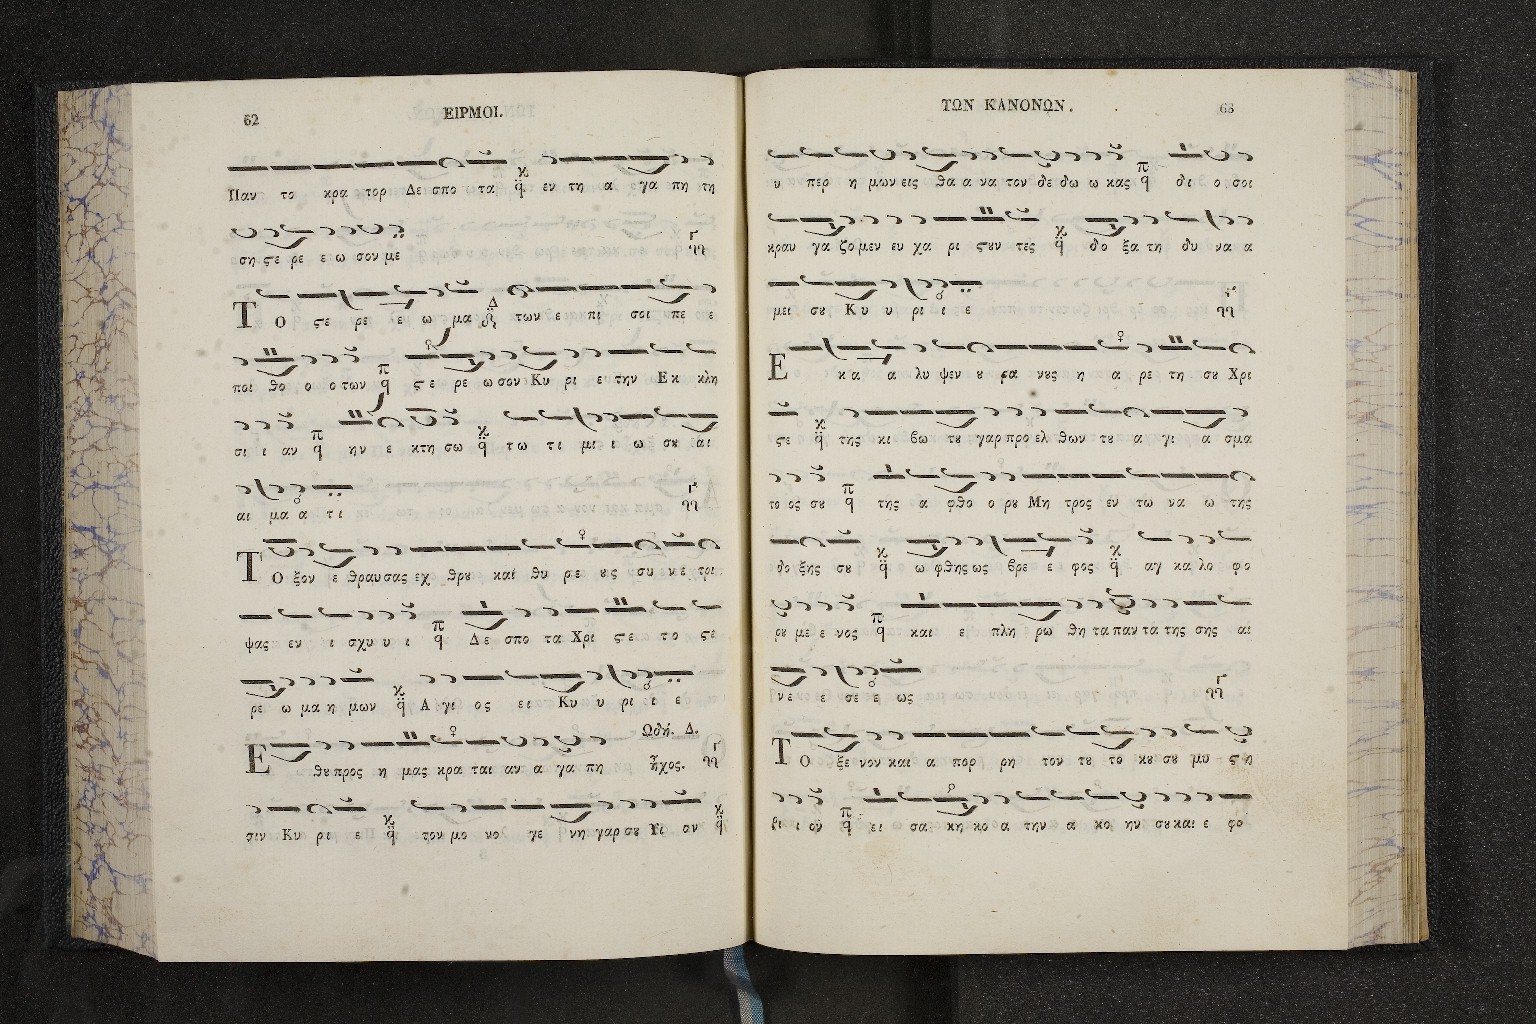 62
ΕΙΡΜΟΙ.
Παν το κρα τορ Δε σπο τα εν τη α γα πη τη
ση ϛε ρε ε ω σον με
Το ϛε ρε ε ω μα των ε πι σοι πε ε
ποι θο ο ο των ϛε ρε ω σον Κυ ρι ε την Εκ κλη
σι ι αν ην ε κτη σω τω τι μι ι ω σȣ αι
αι μα α τι
Το ξον ε θραυσας εχ θρȣ και θυ ρε ȣς συ νε τρι
ψας εν ι σχυ υ ι Δε σπο τα Χρι ϛε το ϛε
ρε ω μα η μων Α γι ος ει Κυ υ ρι ι ε
Ωδή. Δ.
Ε θȣ προς η μας κρα ται αν α γα πη ἦχος.
σιν Κυ ρι ε τον μο νο γε νη γαρ σȣ Υι ον
ΤΩΝ ΚΑΝΟΝΩΝ.
63
υ περ η μων εις θα α να τον δε δω ω κας δι ο σοι
κραυ γα ζο μεν ευ χα ρι ϛȣν τες δο ξα τη δυ να α
μει σȣ Κυ υ ρι ι ε
Ε κα α λυ ψεν ȣ ρα νȣς η α ρε τη σȣ Χρι
ϛε της κι βω τȣ γαρ προ ελ θων τȣ α γι α σμα
το ος σȣ της α φθο ο ρȣ Μη τρος εν τω να ω της
δο ξης σȣ ω φθης ως βρε ε φος αγ κα λο φο
ρȣ με ε νος και ε πλη ρω θη τα παν τα της σης αι
νε ε σε ε ως
Το ξε νον και α πορ ρη τον τȣ το κȣ σȣ μυ ϛη
ρι ι ον ει σα κη κο α την α κο ην σȣ και ε φο